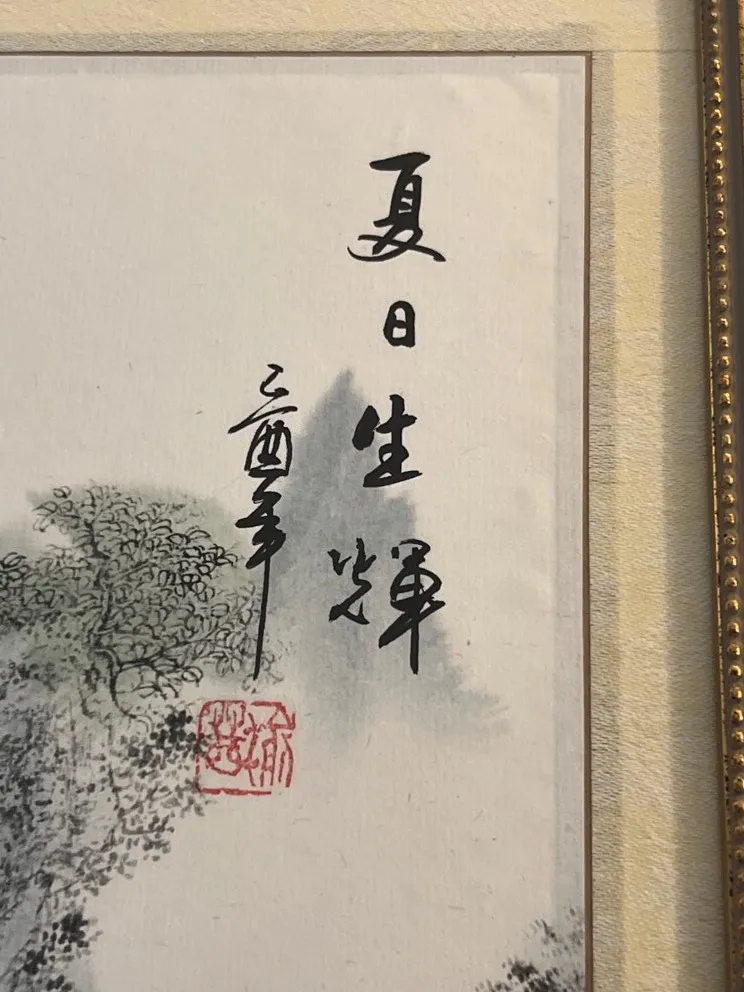 夏日生輝
乙酉年